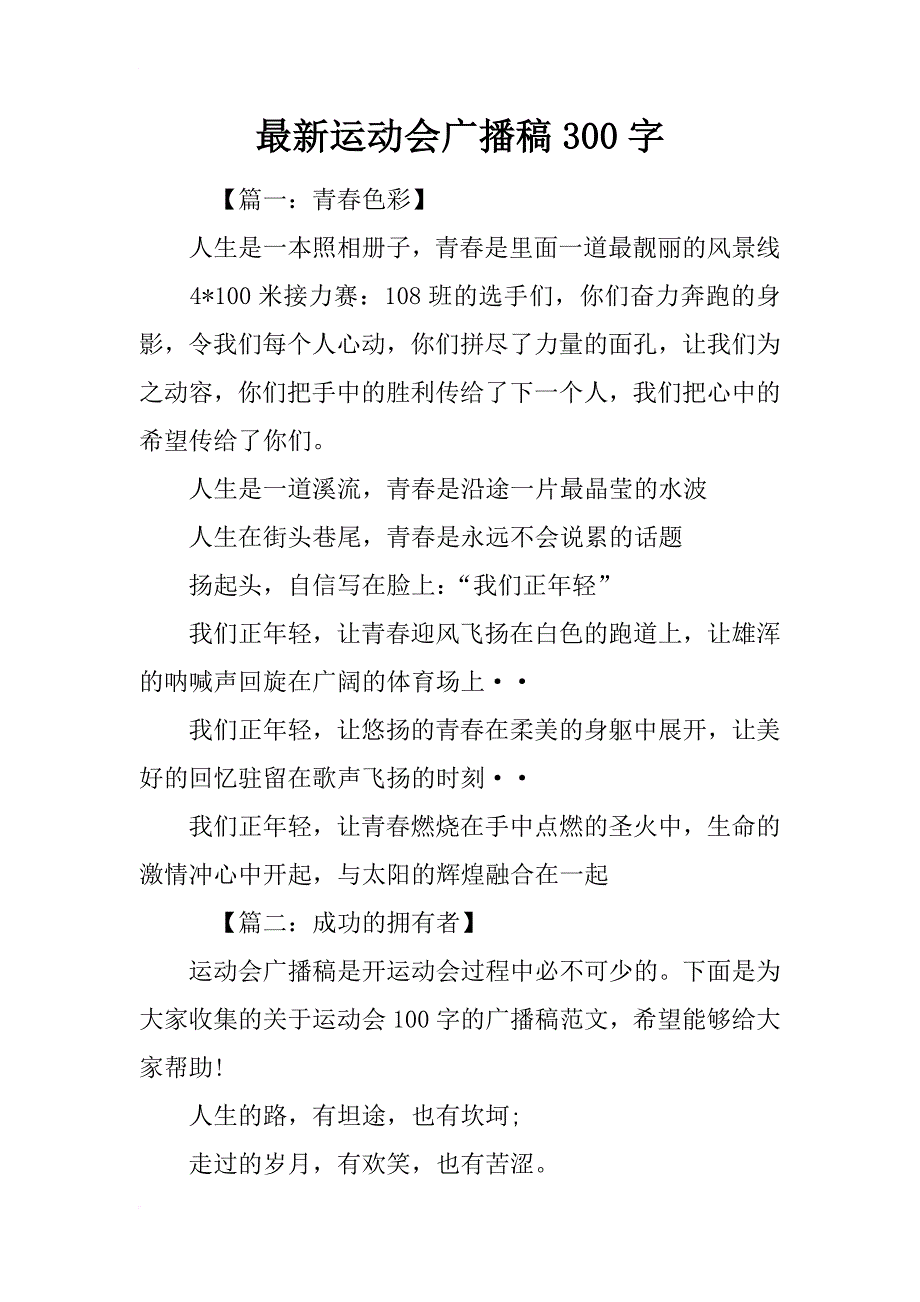 最新运动会广播稿300字
【篇一：青春色彩】
人生是一本照相册子，青春是里面一道最靓丽的风景线
4*100米接力赛：108班的选手们，你们奋力奔跑的身
影，令我们每个人心动，你们拼尽了力量的面孔，让我们为
之动容，你们把手中的胜利传给了下一个人，我们把心中的
希望传给了你们。
人生是一道溪流，青春是沿途一片最晶莹的水波
人生在街头巷尾，青春是永远不会说累的话题
扬起头，自信写在脸上：“我们正年轻”
我们正年轻，让青春迎风飞扬在白色的跑道上，让雄浑
的呐喊声回旋在广阔的体育场上··
我们正年轻，让悠扬的青春在柔美的身躯中展开，让美
好的回忆驻留在歌声飞扬的时刻··
我们正年轻，让青春燃烧在手中点燃的圣火中，生命的
激情冲心中开起，与太阳的辉煌融合在一起
【篇二：成功的拥有者】
运动会广播稿是开运动会过程中必不可少的。下面是为
大家收集的关于运动会100字的广播稿范文，希望能够给大
家帮助!
人生的路，有坦途，也有坎坷;
走过的岁月，有欢笑，也有苦涩。